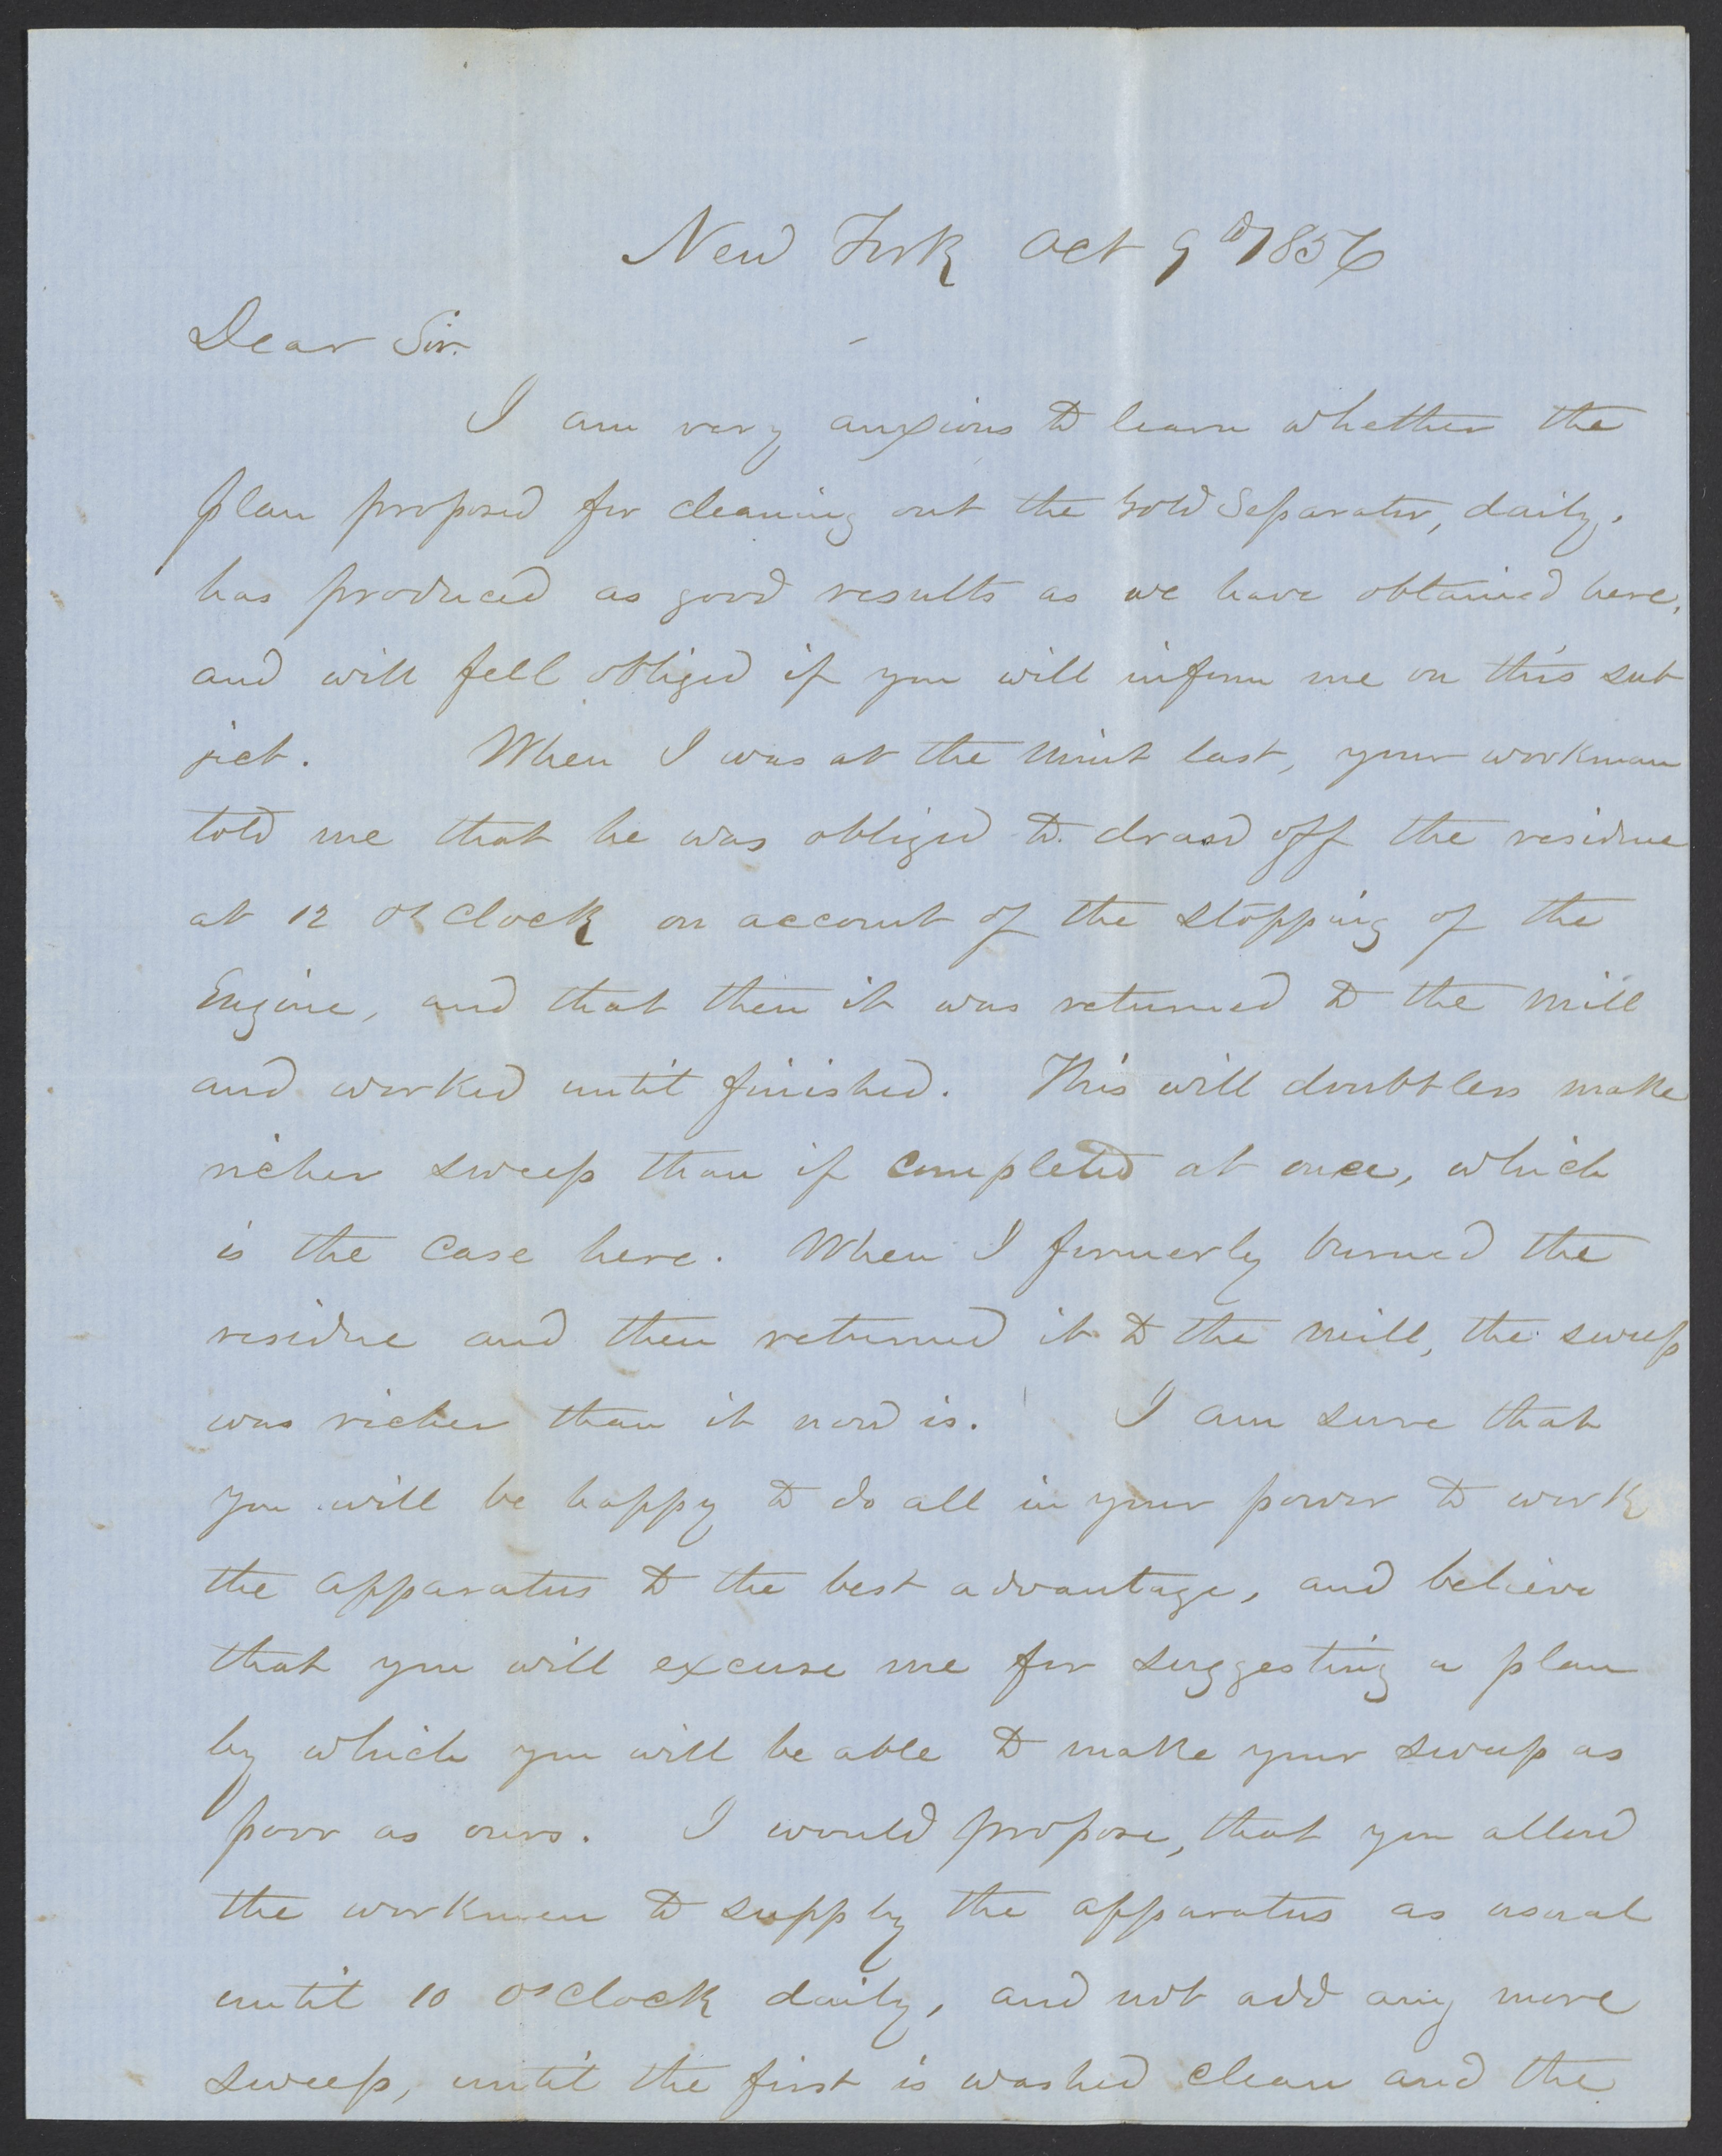 New York Oct 9th 1856
Dear Sir.
I am very anxious to learn whether the
plan proposed for cleaning out the Gold Separator, daily,
has produced as good results as we have obtained here,
and will fell obliged if you will inform me on this sub
ject. When I was at the Mint last, your workman
told me that he was obliged to draw off the residue
at 12 O'Clock on account of the stopping of the
Engine, and that then it was returned to the mill
and worked until finished. This will doubtless make
richer sweep than if completed at once, which
is the case here. When I formerly burned the
residue and then returned it to the mill, the sweep
was richer than it now is. I am sure that
you will be happy to do all in your power to work
the apparatus to the best advantage, and believe
that you will excuse me for suggesting a plan
by which you will be able to make your sweep as
poor as ours. I would propose, that you allow
the workmen to supply the apparatus as usual
until 10 O'Clock daily, and not add any more
sweep, until the first is washed clean and the